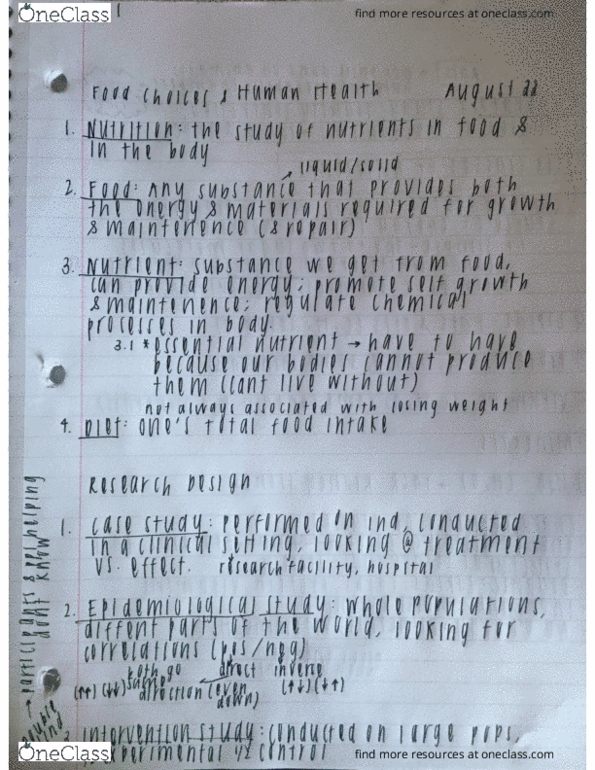 OneClass
1
find more resources at oneclass.com
Food Choices & Human Health August 22
1. Nutrition: the study of nutrients in food &
in the body
liquid/solid
2. Food: Any substance that provides both
the energy & materials required for growth
& maintenence (& repair)
3. Nutrient: substance we get from food,
can provide energy; promote self growth
& maintenence; regulate chemical
processes in body.
3.1 * essential nutrient → have to have
because our bodies cannot produce
them (cant live without)
not always associated with losing weight
4. Diet: one's total food intake
Research Design
1. Case study: performed on ind, conducted
in a clinical setting, looking @ treatment
vs. effect. research facility, hospital
2. Epidemiological study: whole populations,
diffent parts of the world, looking for
correlations (pos/neg)
both go direct inverse
(↑↑) (↓↓) same direction (even down) (↑↓) (↓↑)
→ participants & ppl helping
dont know
intervention study: conducted on large pops,
experimental vs control
OneClass
find more resources at oneclass.com